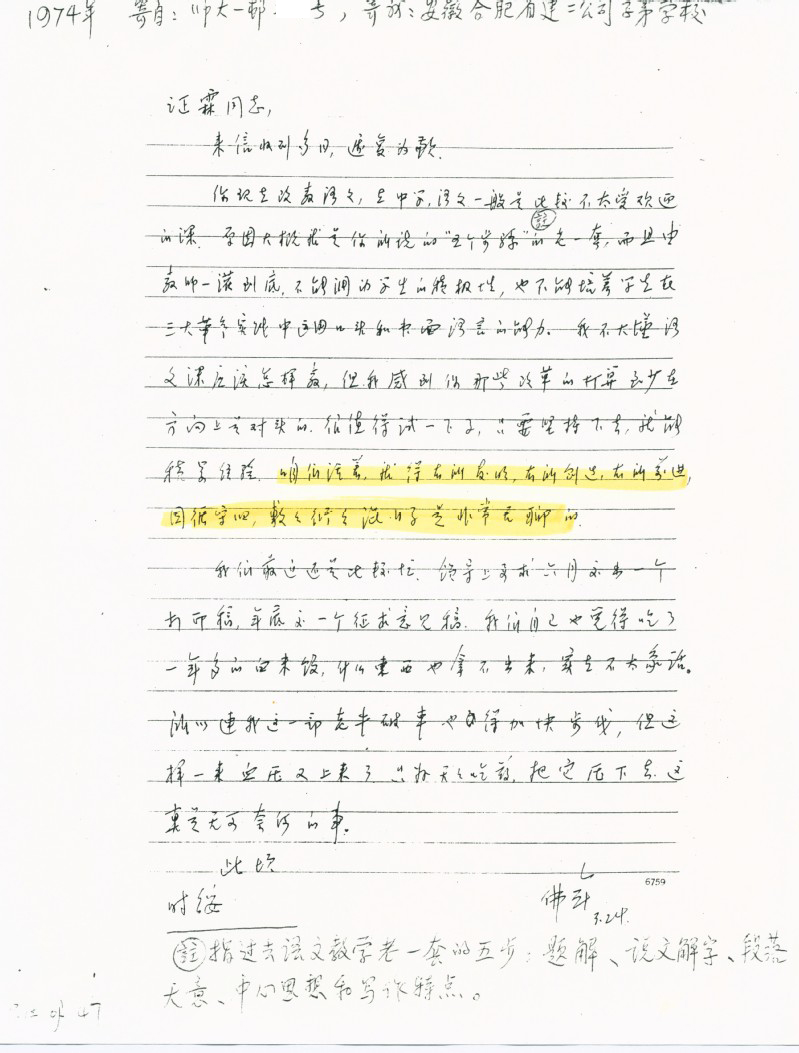 1974年 寄自：师大一邨 号，寄就：安徽合肥省建二公司子弟学校
证霖同志，
来信收到多日，迟复为歉。
你现在改教语文，在中学，语文一般是比较不太受欢迎
的课。原因大概就是你所说的“五个步骤”(註)的老一套，而且由
教师一灌到底，不能调动学生的积极性，也不能培养学生在
三大革命实践中运用口头和书面语言的能力。我不大懂语
文课应该怎样教，但我感到你那些改革的打算至少在
方向上是对头的。很值得试一下子，只要坚持下去，就能
积累经验。咱们活着，就得有所发明，有所创造，有所前进，
因循守旧，敷敷衍衍混日子是非常无聊的。
我们最近还是比较忙。领导上要求六月交出一个
打印稿，年底交一个征求意见稿。我们自己也觉得吃了
一年多的白来饭，什么东西也拿不出来，实在不太象话。
所以连我这一部老牛破车也得加快步伐，但这
样一来血压又上来了。只好天天吃药，把它压下去。这
真是无可奈何的事。
此颂
时绥
佛
3.24.
6759
(註)指过去语文教学老一套的五步：题解、说文解字、段落
大意、中心思想和写作特点。
of 47